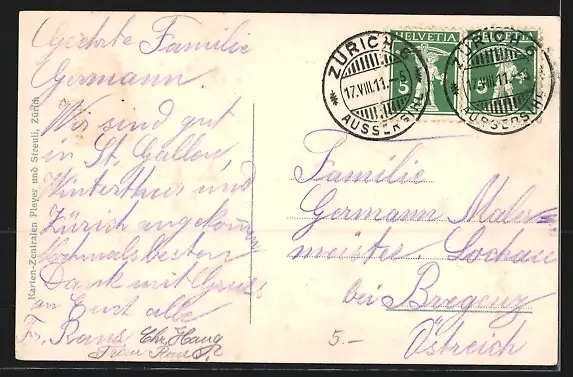 Geehrte Familie
Germann.
Wir sind gut
in St. Gallen,
Winterthur und
Zürich angekommen
Nochmals besten
Dank mit Gruss
an Euch alle
Fr. Rans Chr. Haug
Karten-Zentralen Pleyer und Streuli, Zürich
HELVETIA HELVETIA
5 5
ZÜRICH 6
17.VIII.11.-5
AUSSERSIHL
ZÜRICH 6
17.VIII.11.-5
AUSSERSIHL
Familie
Germann Maler=
meister. Lochau
bei Bregenz
Östreich
5.-